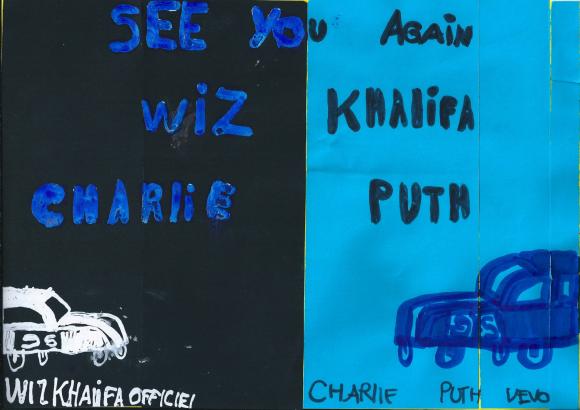 SEE YOU AGAIN
WIZ KHALIFA
CHARLIE PUTH
WIZ KHALIFA OFFICIEl
CHARlIE PUTH VEVO